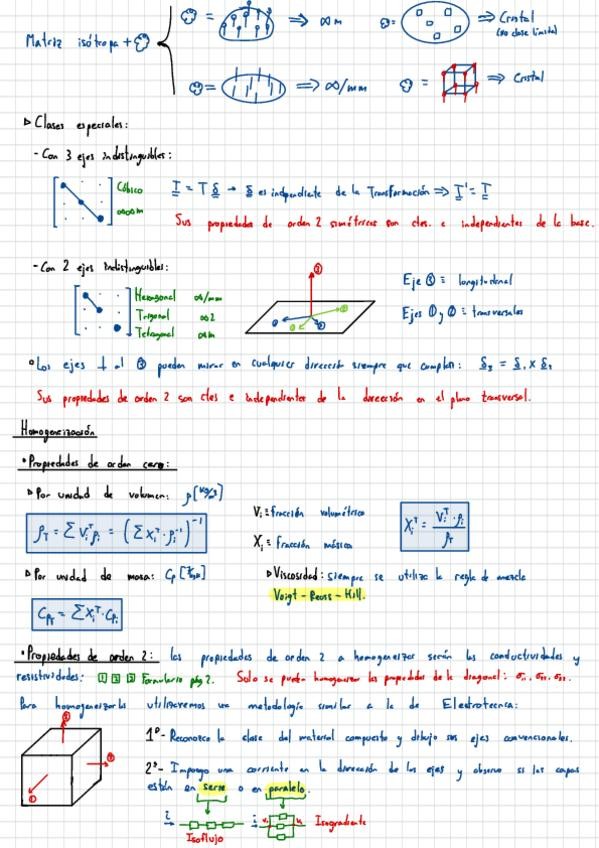 ⇒ ∞m
⇒ Cristal
(no clase límite)
Matriz isótropa +
⇒ ∞/mm
⇒ Cristal
▷ Clases especiales:
- Con 3 ejes indistinguibles:
Cúbico
∞∞m
T = T δ → δ es independiente de la Transformación ⇒ T' = T
Sus propiedades de orden 2 simétricas son ctes. e independientes de la base.
- Con 2 ejes Indistinguibles:
Hexagonal ∞/mm
Trigonal ∞2
Tetragonal ∞m
③
Eje ③ ≡ longitudinal
Ejes ① y ② ≡ transversales
• Los ejes ⊥ al ③ pueden mirar en cualquier dirección siempre que cumplan:
Sus propiedades de orden 2 son ctes e independientes de la dirección en el plano transversal.
Homogeneización
• Propiedades de orden cero:
▷ Por unidad de volumen: ρ [kg/m³]
ρT = Σ ViT ρi = (Σ xiT · ρi⁻¹)⁻¹
Vi ≡ fracción volumétrica
Xi ≡ fracción másica
XiT = ViT · ρi / ρT
▷ Por unidad de masa: Cp
CpT = Σ xiT · Cpi
▷ Viscosidad: siempre se utiliza la regla de mezcla
Voigt - Reuss - Hill.
• Propiedades de orden 2: las propiedades de orden 2 a homogeneizar serán las conductividades y
resistividades: 1 2 3 Formulario pág 2. Solo se pueden homogeneizar las propiedades de la diagonal:
Para homogeneizarlas utilizaremos una metodología similar a la de Electrotecnia:
1º- Reconozco la clase del material compuesto y dibujo sus ejes convencionales.
2º- Impongo una corriente en la dirección de los ejes y observo si las capas
están en serie o en paralelo.
i
Isoflujo
i
Isogradiente